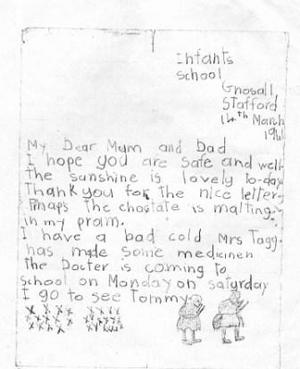 Infants
School
Gnosall
Stafford
14th March
194
My Dear Mum and Dad
I hope you are safe and well
the sunshine is lovely to-day
Thank you for the nice letter
Pmaps the choctate is malting
in my pram.
I have a bad cold Mrs Tagg
has made some medicinen
the Docter is coming to
school on Monday on saturday
I go to see Tommy
xxxxx xxxx
xxxxx xxxx
xxxxx xxxx